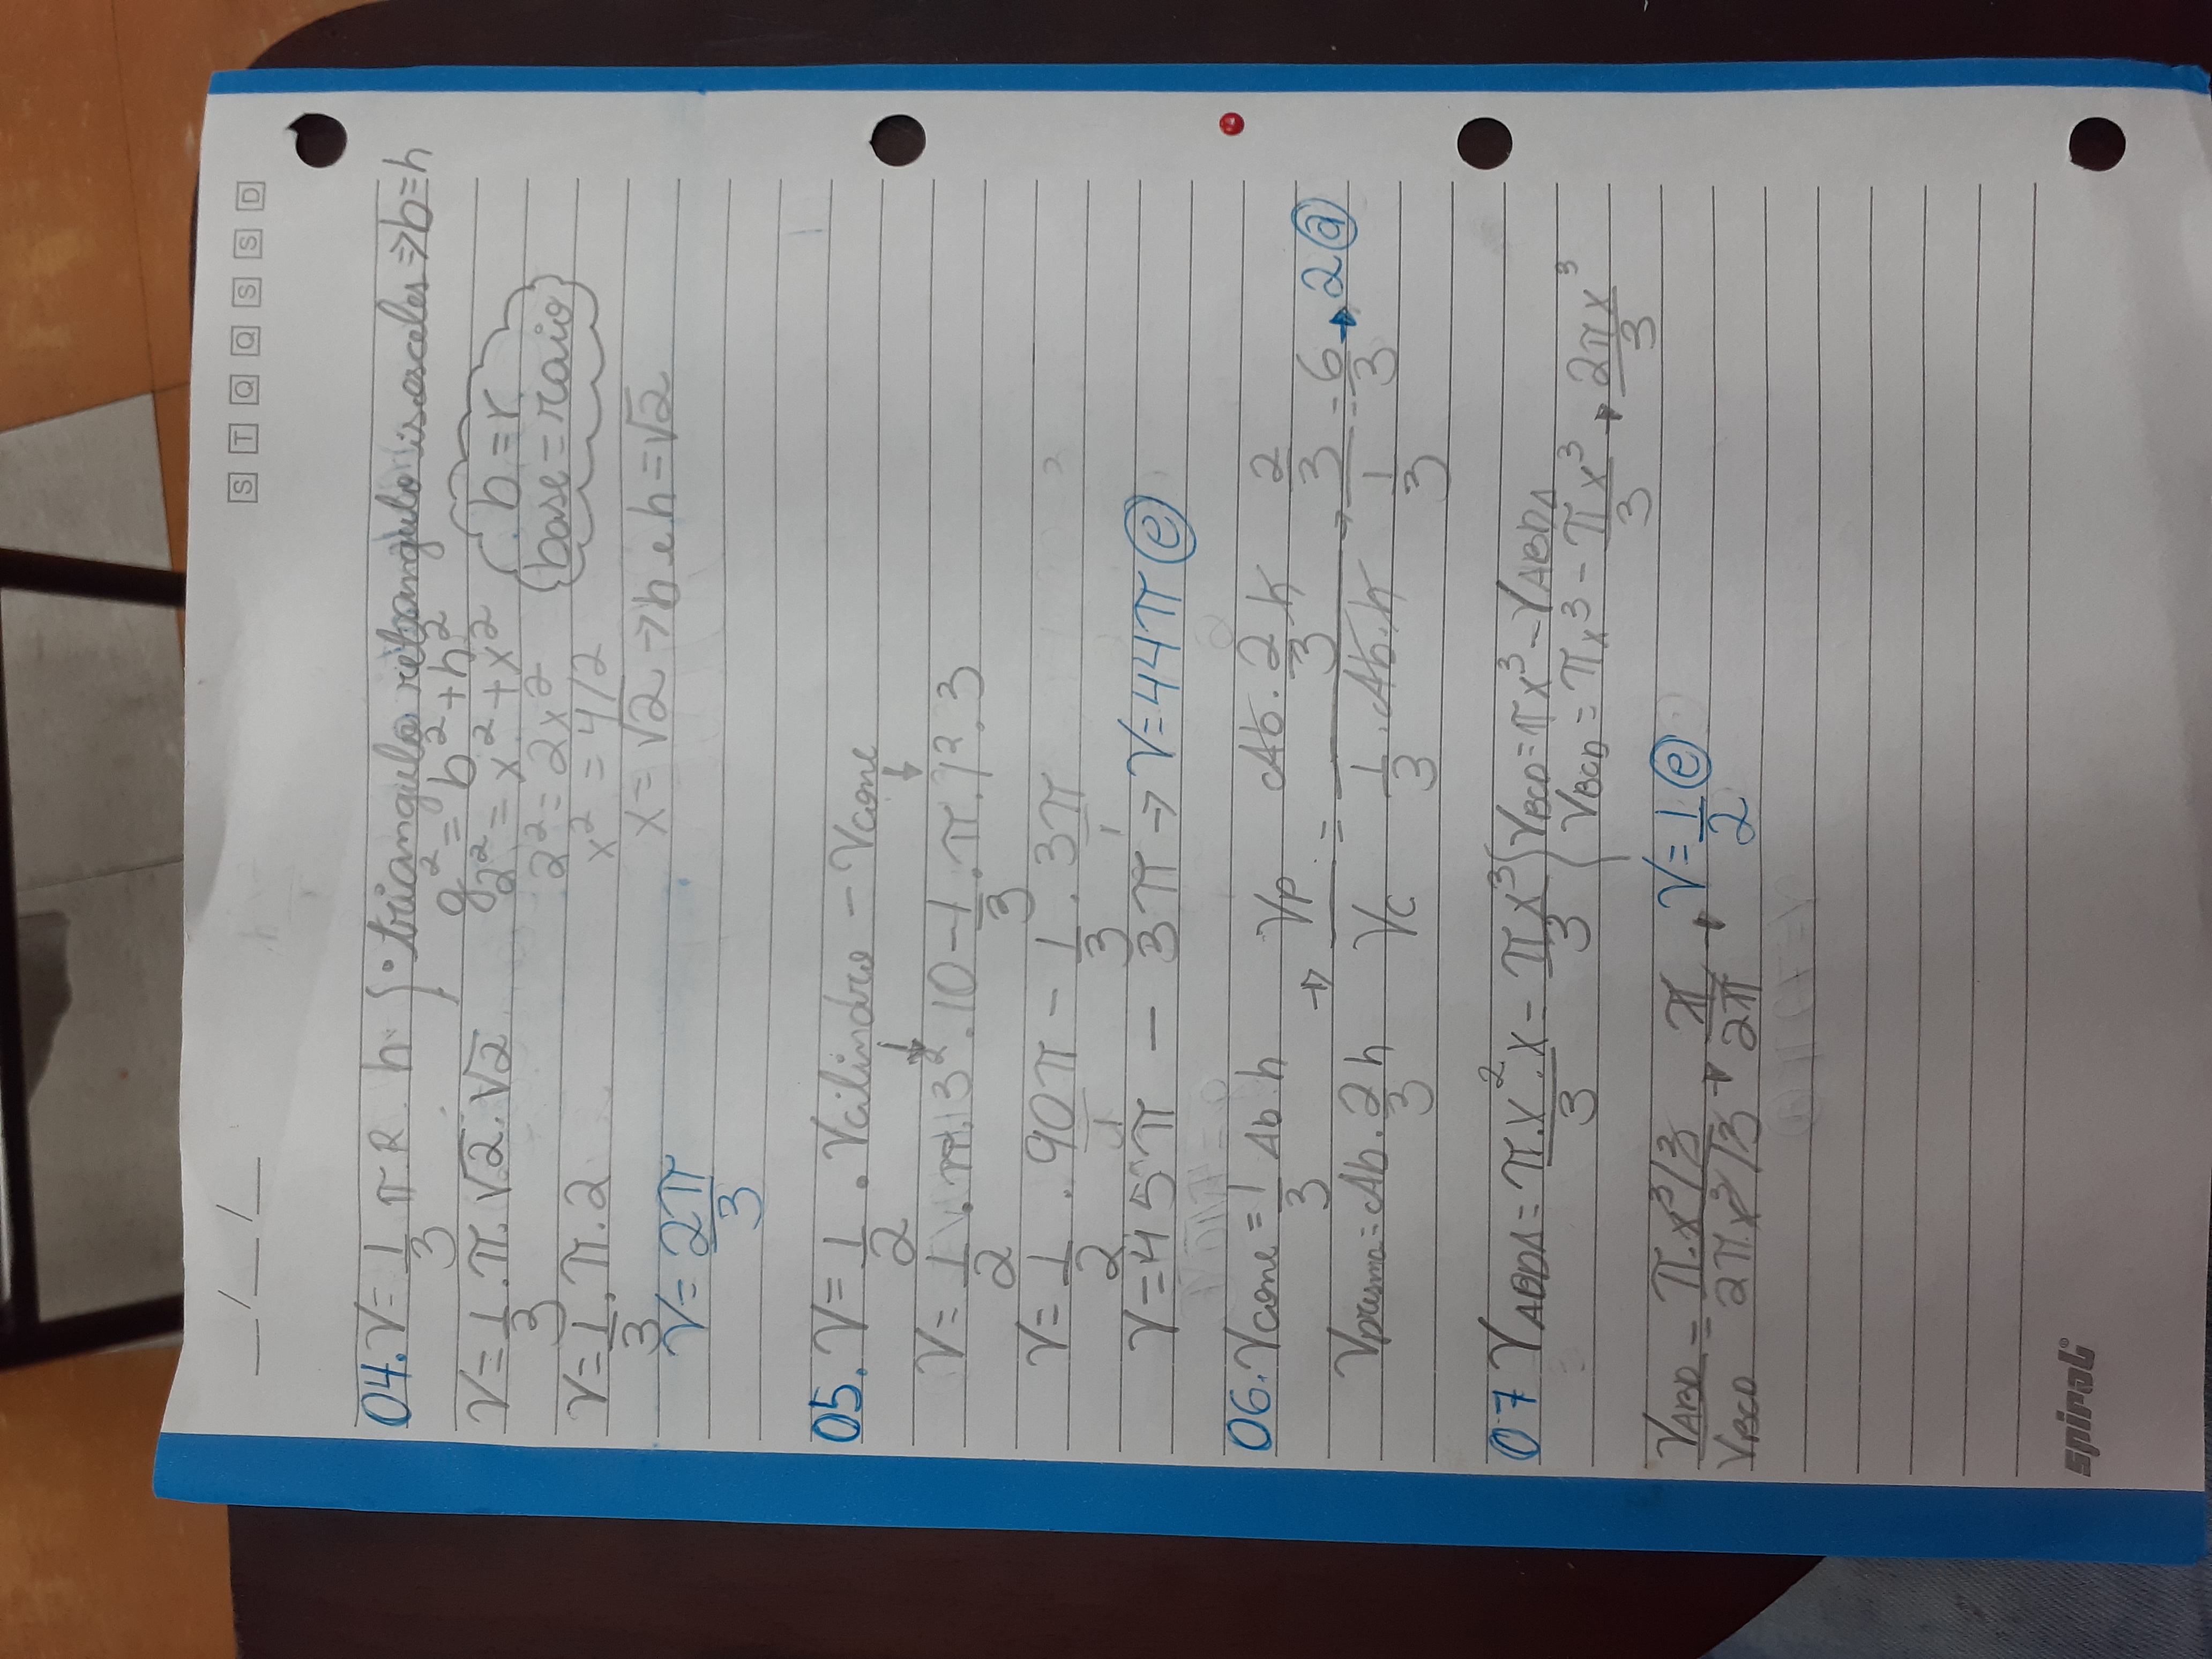 __/__/__ S T Q Q S S D
04. V = 1/3 π R . h { • triangulo retangulo isosceles => b = h
g² = b² + h²
V = 1/3 . π . √2 . √2
2² = x² + x²
b = r
2² = 2x²
base = raio
V = 1/3 . π . 2
x² = 4/2
x = √2 → b e h = √2
V = 2π/3
05. V = 1/2 . Vcilindro - Vcone
↓ ↓
V = 1/2 . π . 3² . 10 - 1/3 . π . 1² . 3
V = 1/2 . 90π/1 - 1/3 . 3π/1
V = 45π - 3π → V = 44π (e)
06. Vcone = 1/3 Ab . h
Vprisma = Ab . 2/3 h
→ VP/VC = Ab . 2/3 h / 1/3 . Ab . h → 2/3 / 1/3 = 6/3 → 2 (a)
07 VABDA = π.x².x/3 = πx³/3 { VBCD = πx³ - VABDA
VBCD = πx³ - πx³/3 → 2πx³/3
VABD/VBCD = π.x³/3 / 2π.x³/3 → π/2π → V = 1/2 (e)
spiral®